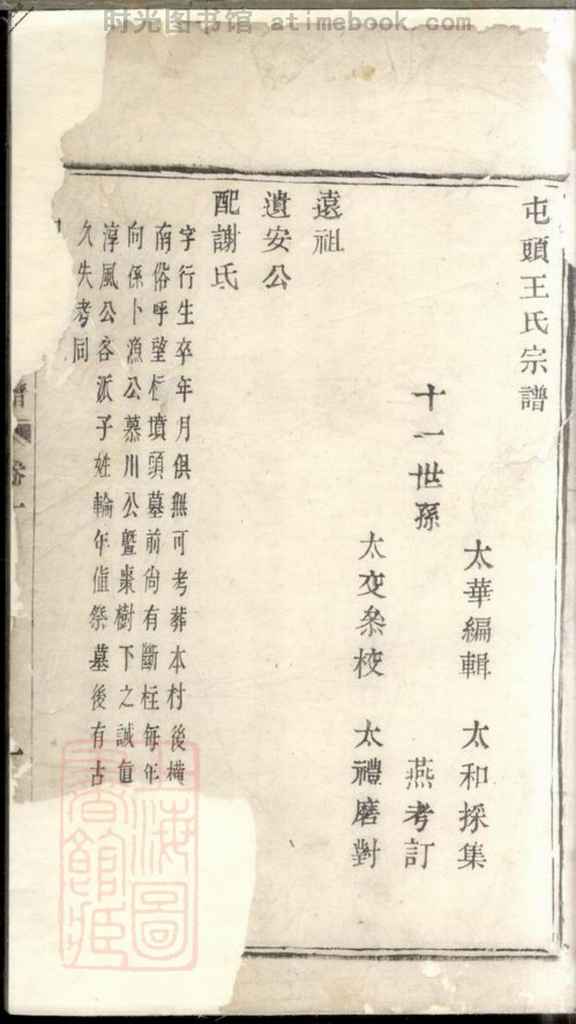 时光图书馆 atimebook.com
屯頭王氏宗譜
太華編輯 太和採集
十一世孫 燕考訂
太交叅校 太禮磨對
遠祖
遺安公
配謝氏
字行生卒年月俱無可考葬本村後橫
南俗呼望柱墳頭墓前尚有斷柱每年
向係卜漁公慕川公曁棗樹下之誠直
淳風公各派子姓輪年值祭墓後有古
久失考同
譜 卷一
一
上海圖書館藏